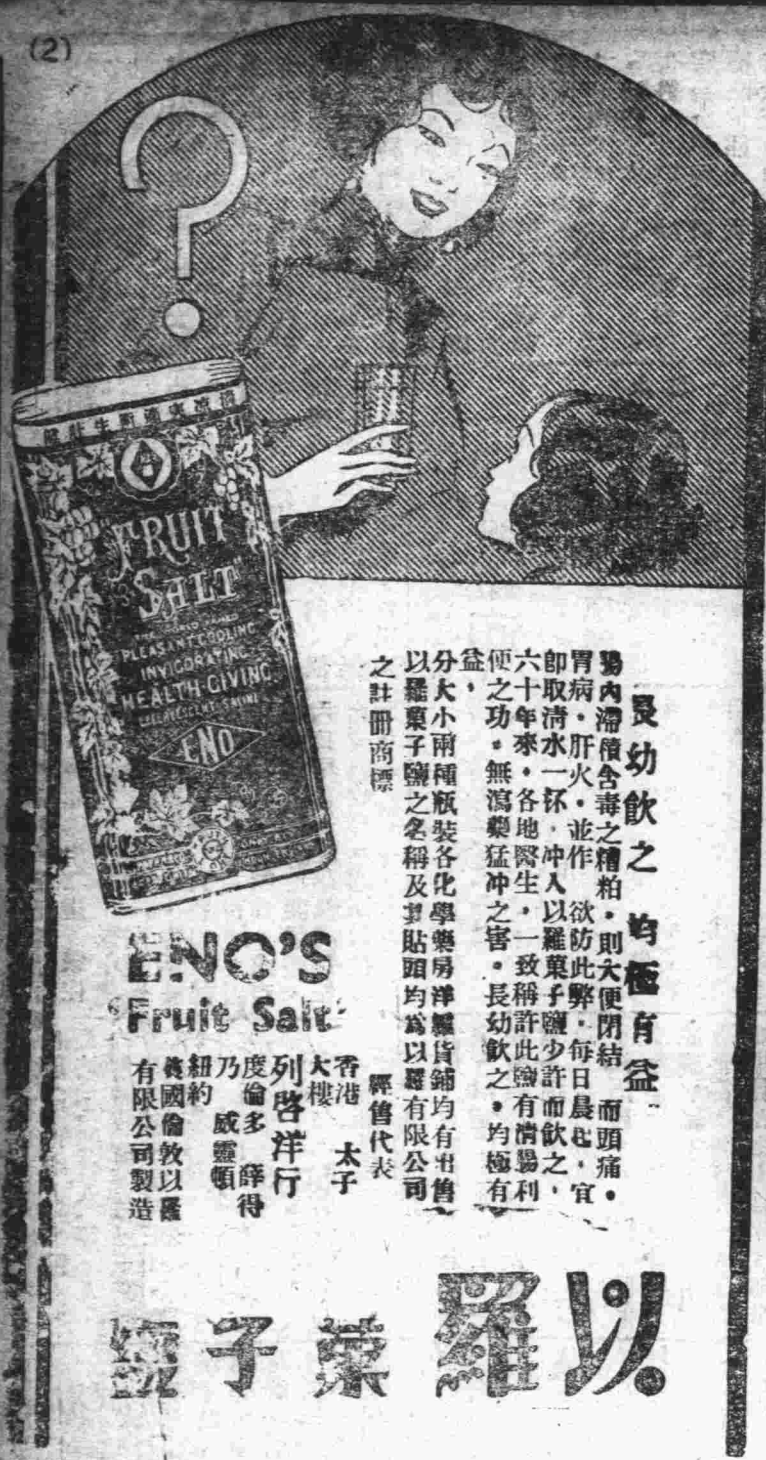 (2)
?
FRUIT
SALT
PLEASANT COOLING
INVIGORATING
HEALTH-GIVING
ENO
長幼飲之 均極有益
腸內滯積含毒之糟粕，則大便閉結 而頭痛，
胃病，肝火，並作 欲防此弊，每日晨起，宜
卽取淸水一杯，冲入以羅菓子鹽少許而飲之，
六十年來，各地醫生，一致稱許此鹽有淸腸利
便之功，無瀉藥猛冲之害，長幼飲之，均極有
益，
分大小兩種瓶裝各化學藥房洋雜貨鋪均有出售
以羅菓子鹽之名稱及其貼頭均為以羅有限公司
之註冊商標
ENO'S
"Fruit Salt"
經售代表
香港 太子
大樓
列啓洋行
度倫多 薛得
乃 威靈頓
紐約
英國倫敦以羅
有限公司製造
以羅菓子鹽